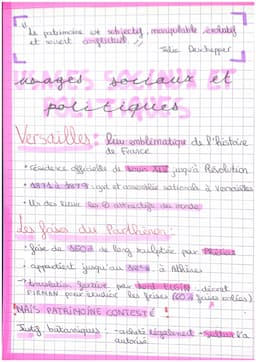 Le patrimoine est subjectif, manipulable, évolutif
et souvent conflictuel
Julie Deschepper
usages sociaux et
politiques
Versailles : lieu emblématique de l'histoire
de France
• résidence officielle de Louis XIV jusqu'à Révolution
• 1871 à 1879 : gvt et assemblée nationale à Versailles
• Un des lieux les attractifs du monde
Les frises du Parthénon :
• frise de 160m de long sculptée par Phidias
• appartient jusqu'au à Athènes
translation par Lord ELGIN décret
FIRMAN pour étudier les frises (60% frises volées)
! MAIS PATRIMOINE CONTESTÉ !
Justif britanniques : - achats légalement - sultan l'a
autorisé